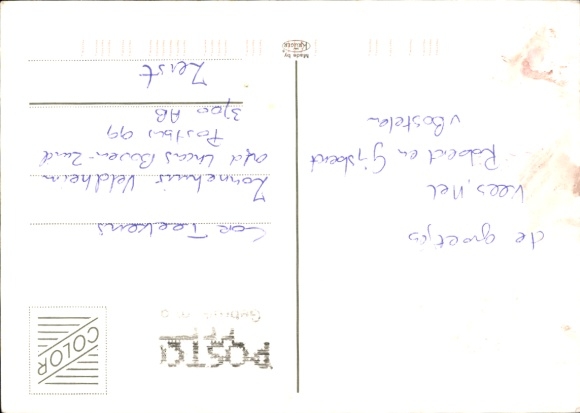 de groetjes
Kees, Nel
Robbert en Gijsbert
v Bostelen
COLOR
Cor Teekens
Zonnehuis Veldheim
afd Lucas Boven-Zuid
Postbus 99
3700 AB
Zeist
Made by